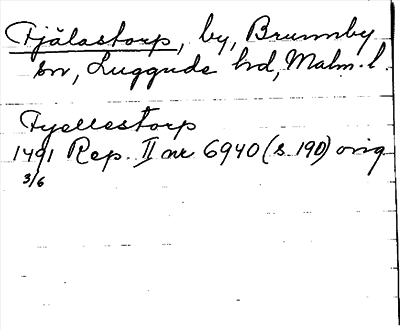 Fjälastorp, by, Brunnby
sn, Luggude hd, Malm. l.
Fyellestorp
1491 Rep. II nr 6940 (s. 190) orig
3/6